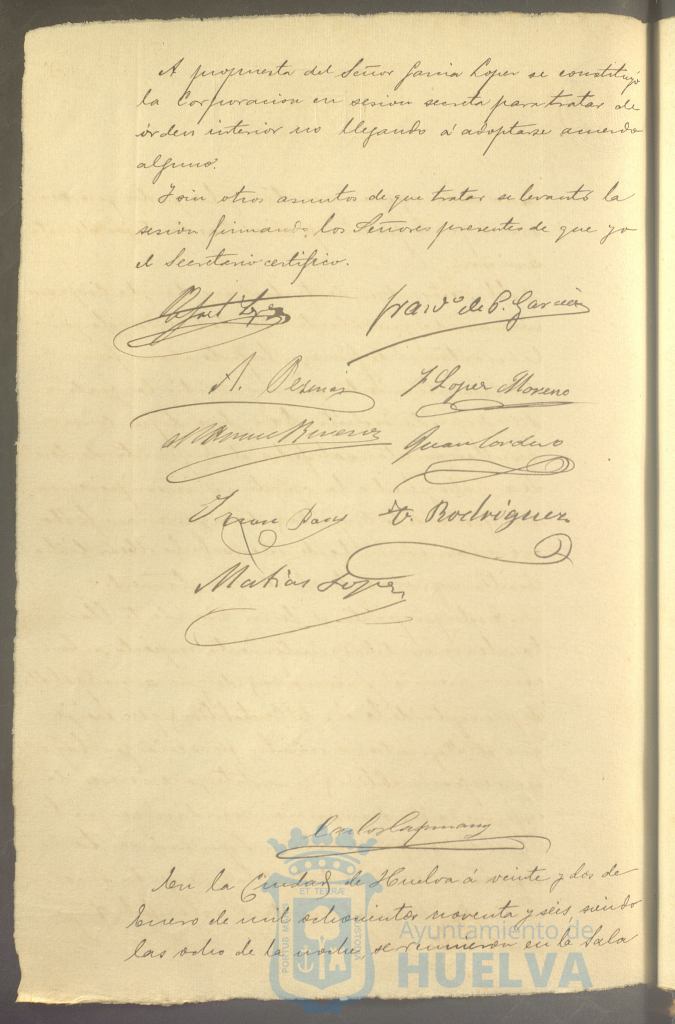 A propuesta del Señor Garcia Lopez se constituyó
la Corporacion en sesion secreta para tratar de
órden interior no llegando á adoptarse acuerdo
alguno.
Y sin otros asuntos de que tratar se levantó la
sesion firmando los Señores presentes de que yo
el Secretario certifico.
Rafael Lopez Franco de P. Garcia
A. F Lopez Moreno
Manuel Rivera Juan Cordero
Juan Rodriguez
Matias Lopez
Carlos Capmany
En la Ciudad de Huelva á veinte y dos de
Enero de mil ochocientos noventa y seis, siendo
las ocho de la noche, se reunieron en la Sala
ET TERRÆ
PORTUS MARIS
CUSTODIA
Ayuntamiento de
HUELVA